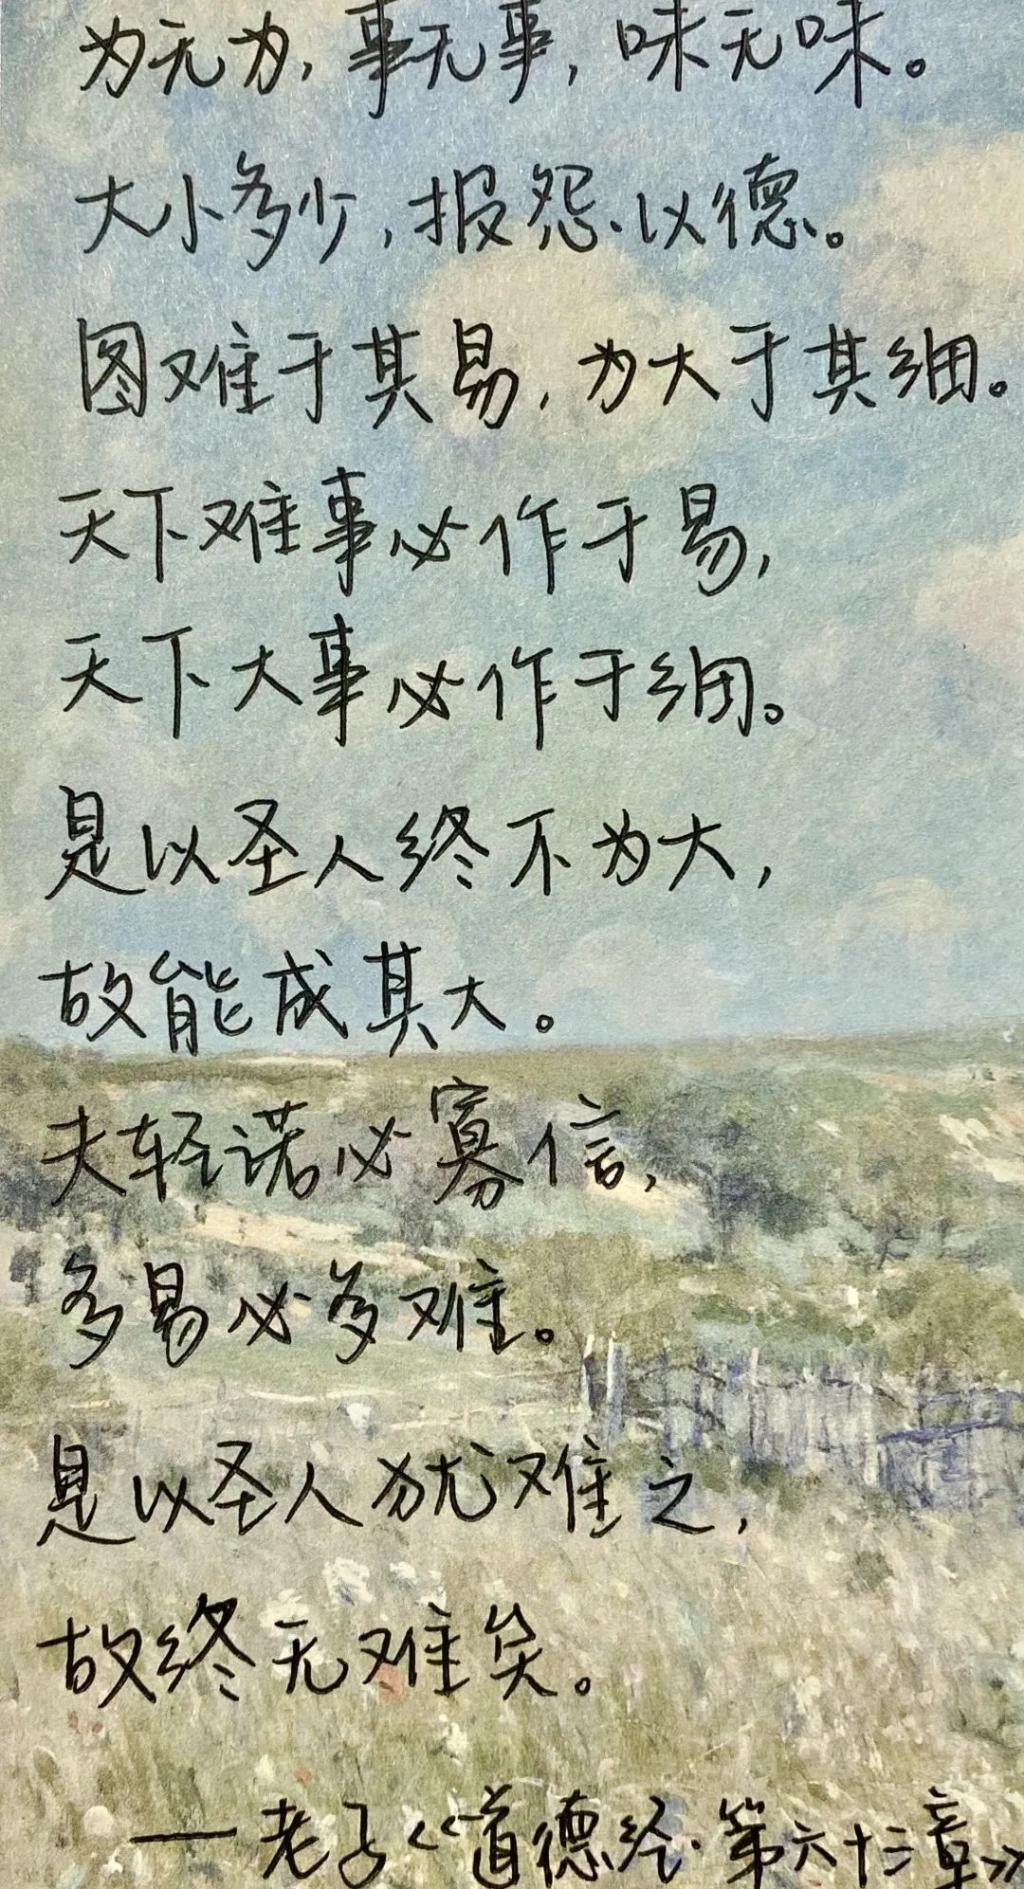 为无为，事无事，味无味。
大小多少，报怨以德。
图难于其易，为大于其细。
天下难事必作于易，
天下大事必作于细。
是以圣人终不为大，
故能成其大。
夫轻诺必寡信，
多易必多难。
是以圣人犹难之，
故终无难矣。
——老子《道德经·第六十三章》